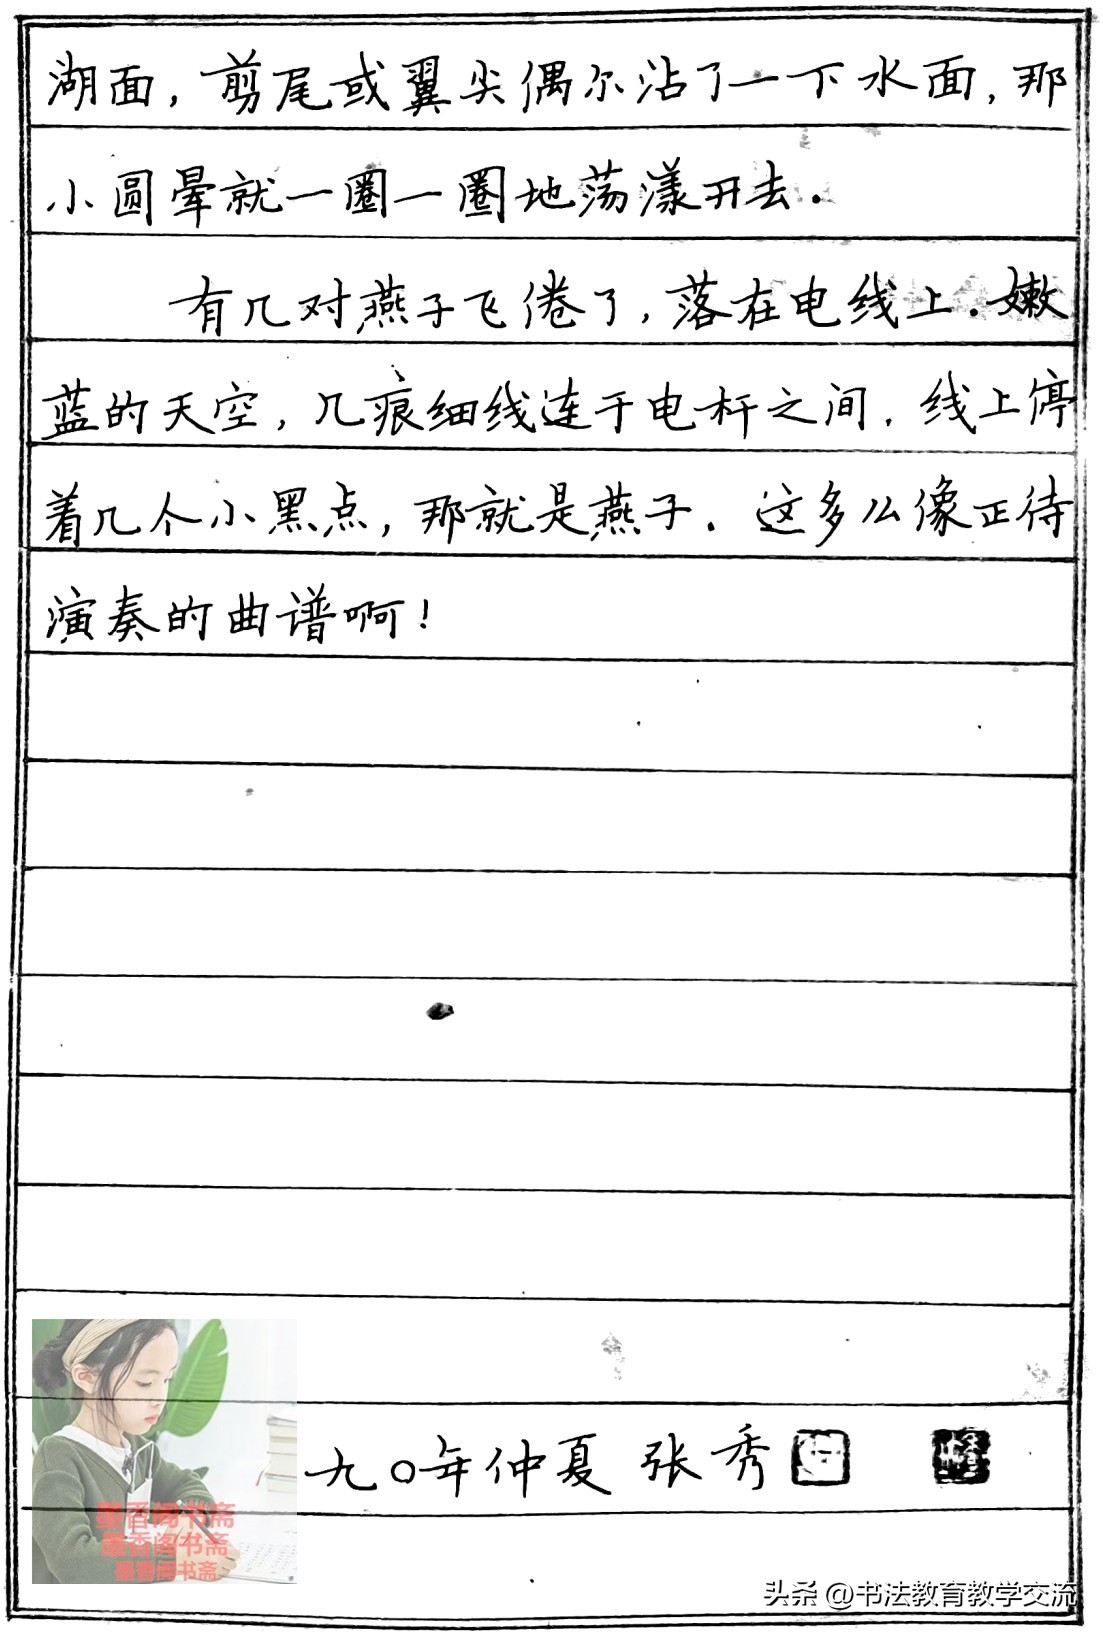 湖面，剪尾或翼尖偶尔沾了一下水面，那
小圆晕就一圈一圈地荡漾开去．
有几对燕子飞倦了，落在电线上．嫩
蓝的天空，几痕细线连于电杆之间，线上停
着几个小黑点，那就是燕子．这多么像正待
演奏的曲谱啊！
九〇年仲夏 张秀
墨香阁书斋
墨香阁书斋
墨香阁书斋
头条 @书法教育教学交流